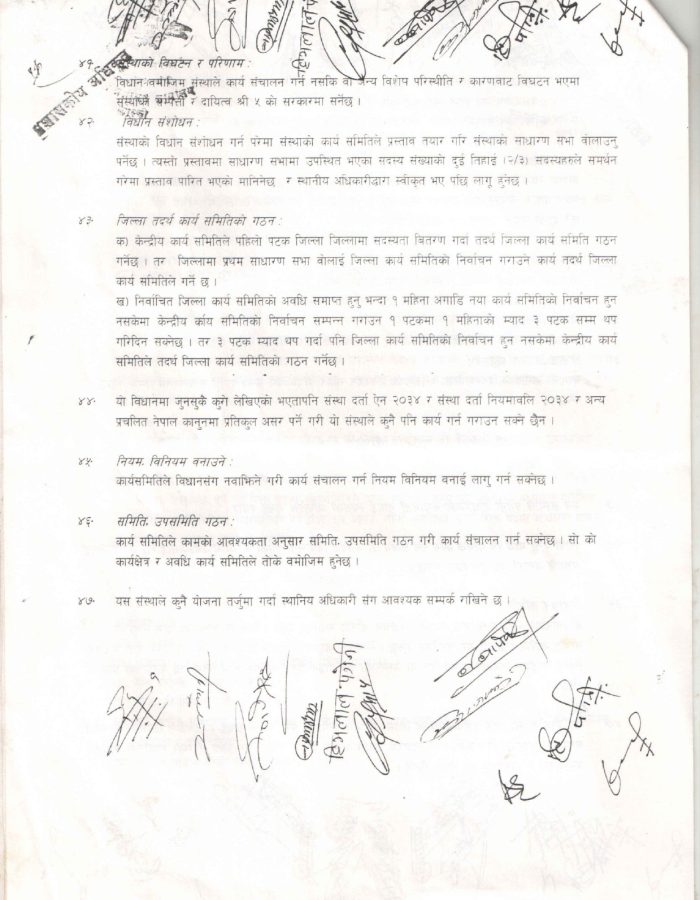 ४१. संस्थाको विघटन र परिणाम :
विधान बमोजिम संस्थाले कार्य संचालन गर्न नसकि वा अन्य विशेष परिस्थीति र कारणवाट विघटन भएमा
संस्थाको सम्पत्ती र दायित्व श्री ५ को सरकारमा सर्नेछ ।
४२. विधान संशोधन :
संस्थाको विधान संशोधन गर्न परेमा संस्थाको कार्य समितिले प्रस्ताव तयार गरि संस्थाको साधारण सभा वोलाउनु
पर्नेछ । त्यस्तो प्रस्तावमा साधारण सभामा उपस्थित भएका सदस्य संख्याको दुई तिहाई (२/३) सदस्यहरुले समर्थन
गरेमा प्रस्ताव पारित भएको मानिनेछ र स्थानीय अधिकारीद्वारा स्वीकृत भए पछि लागू हुनेछ ।
४३. जिल्ला तदर्थ कार्य समितिको गठन :
क) केन्द्रीय कार्य समितिले पहिलो पटक जिल्ला जिल्लामा सदस्यता बितरण गर्दा तदर्थ जिल्ला कार्य समिति गठन
गर्नेछ । तर जिल्लामा प्रथम साधारण सभा वोलाई जिल्ला कार्य समितिको निर्वाचन गराउने कार्य तदर्थ जिल्ला
कार्य समितिले गर्ने छ ।
ख) निर्वाचित जिल्ला कार्य समितिको अवधि समाप्त हुनु भन्दा १ महिना अगाडि नया कार्य समितिको निर्वाचन हुन
नसकेमा केन्द्रीय कार्य समितिको निर्वाचन सम्पन्न गराउन १ पटकमा १ महिनाको म्याद ३ पटक सम्म थप
गरिदिन सक्नेछ । तर ३ पटक म्याद थप गर्दा पनि जिल्ला कार्य समितिको निर्वाचन हुन नसकेमा केन्द्रीय कार्य
समितिले तदर्थ जिल्ला कार्य समितिको गठन गर्नेछ ।
४४. यो विधानमा जुनसुकै कुरो लेखिएको भएतापनि संस्था दर्ता ऐन २०३४ र संस्था दर्ता नियमावलि २०३४ र अन्य
प्रचलित नेपाल कानुनमा प्रतिकुल असर पर्ने गरी यो संस्थाले कुनै पनि कार्य गर्न गराउन सक्ने छैन ।
४५. नियम, विनियम वनाउने :
कार्यसमितिले विधानसंग नवाझिने गरी कार्य संचालन गर्न नियम विनियम वनाई लागु गर्न सक्नेछ ।
४६. समिति, उपसमिति गठन :
कार्य समितिले कामको आवश्यकता अनुसार समिति, उपसमिति गठन गरी कार्य संचालन गर्न सक्नेछ । सो को
कार्यक्षेत्र र अवधि कार्य समितिले तोके वमोजिम हुनेछ ।
४७. यस संस्थाले कुनै योजना तर्जुमा गर्दा स्थानिय अधिकारी संग आवश्यक सम्पर्क राखिने छ ।